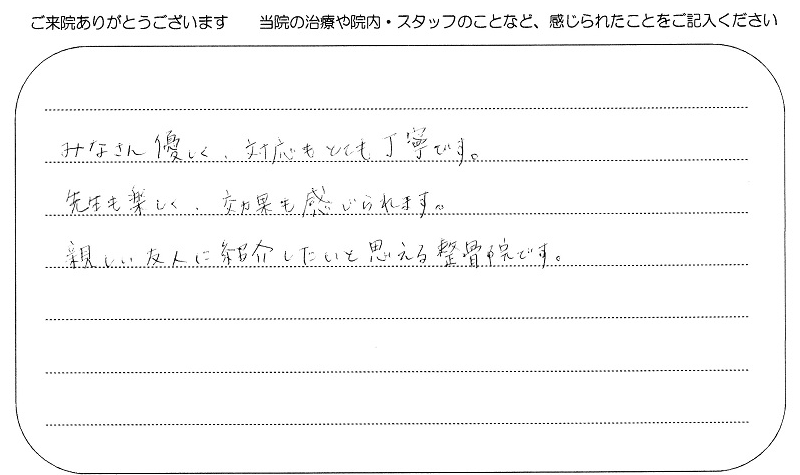 ご来院ありがとうございます　当院の治療や院内・スタッフのことなど、感じられたことをご記入ください
みなさん優しく、対応もとても丁寧です。
先生も楽しく、効果も感じられます。
親しい友人に紹介したいと思える整骨院です。